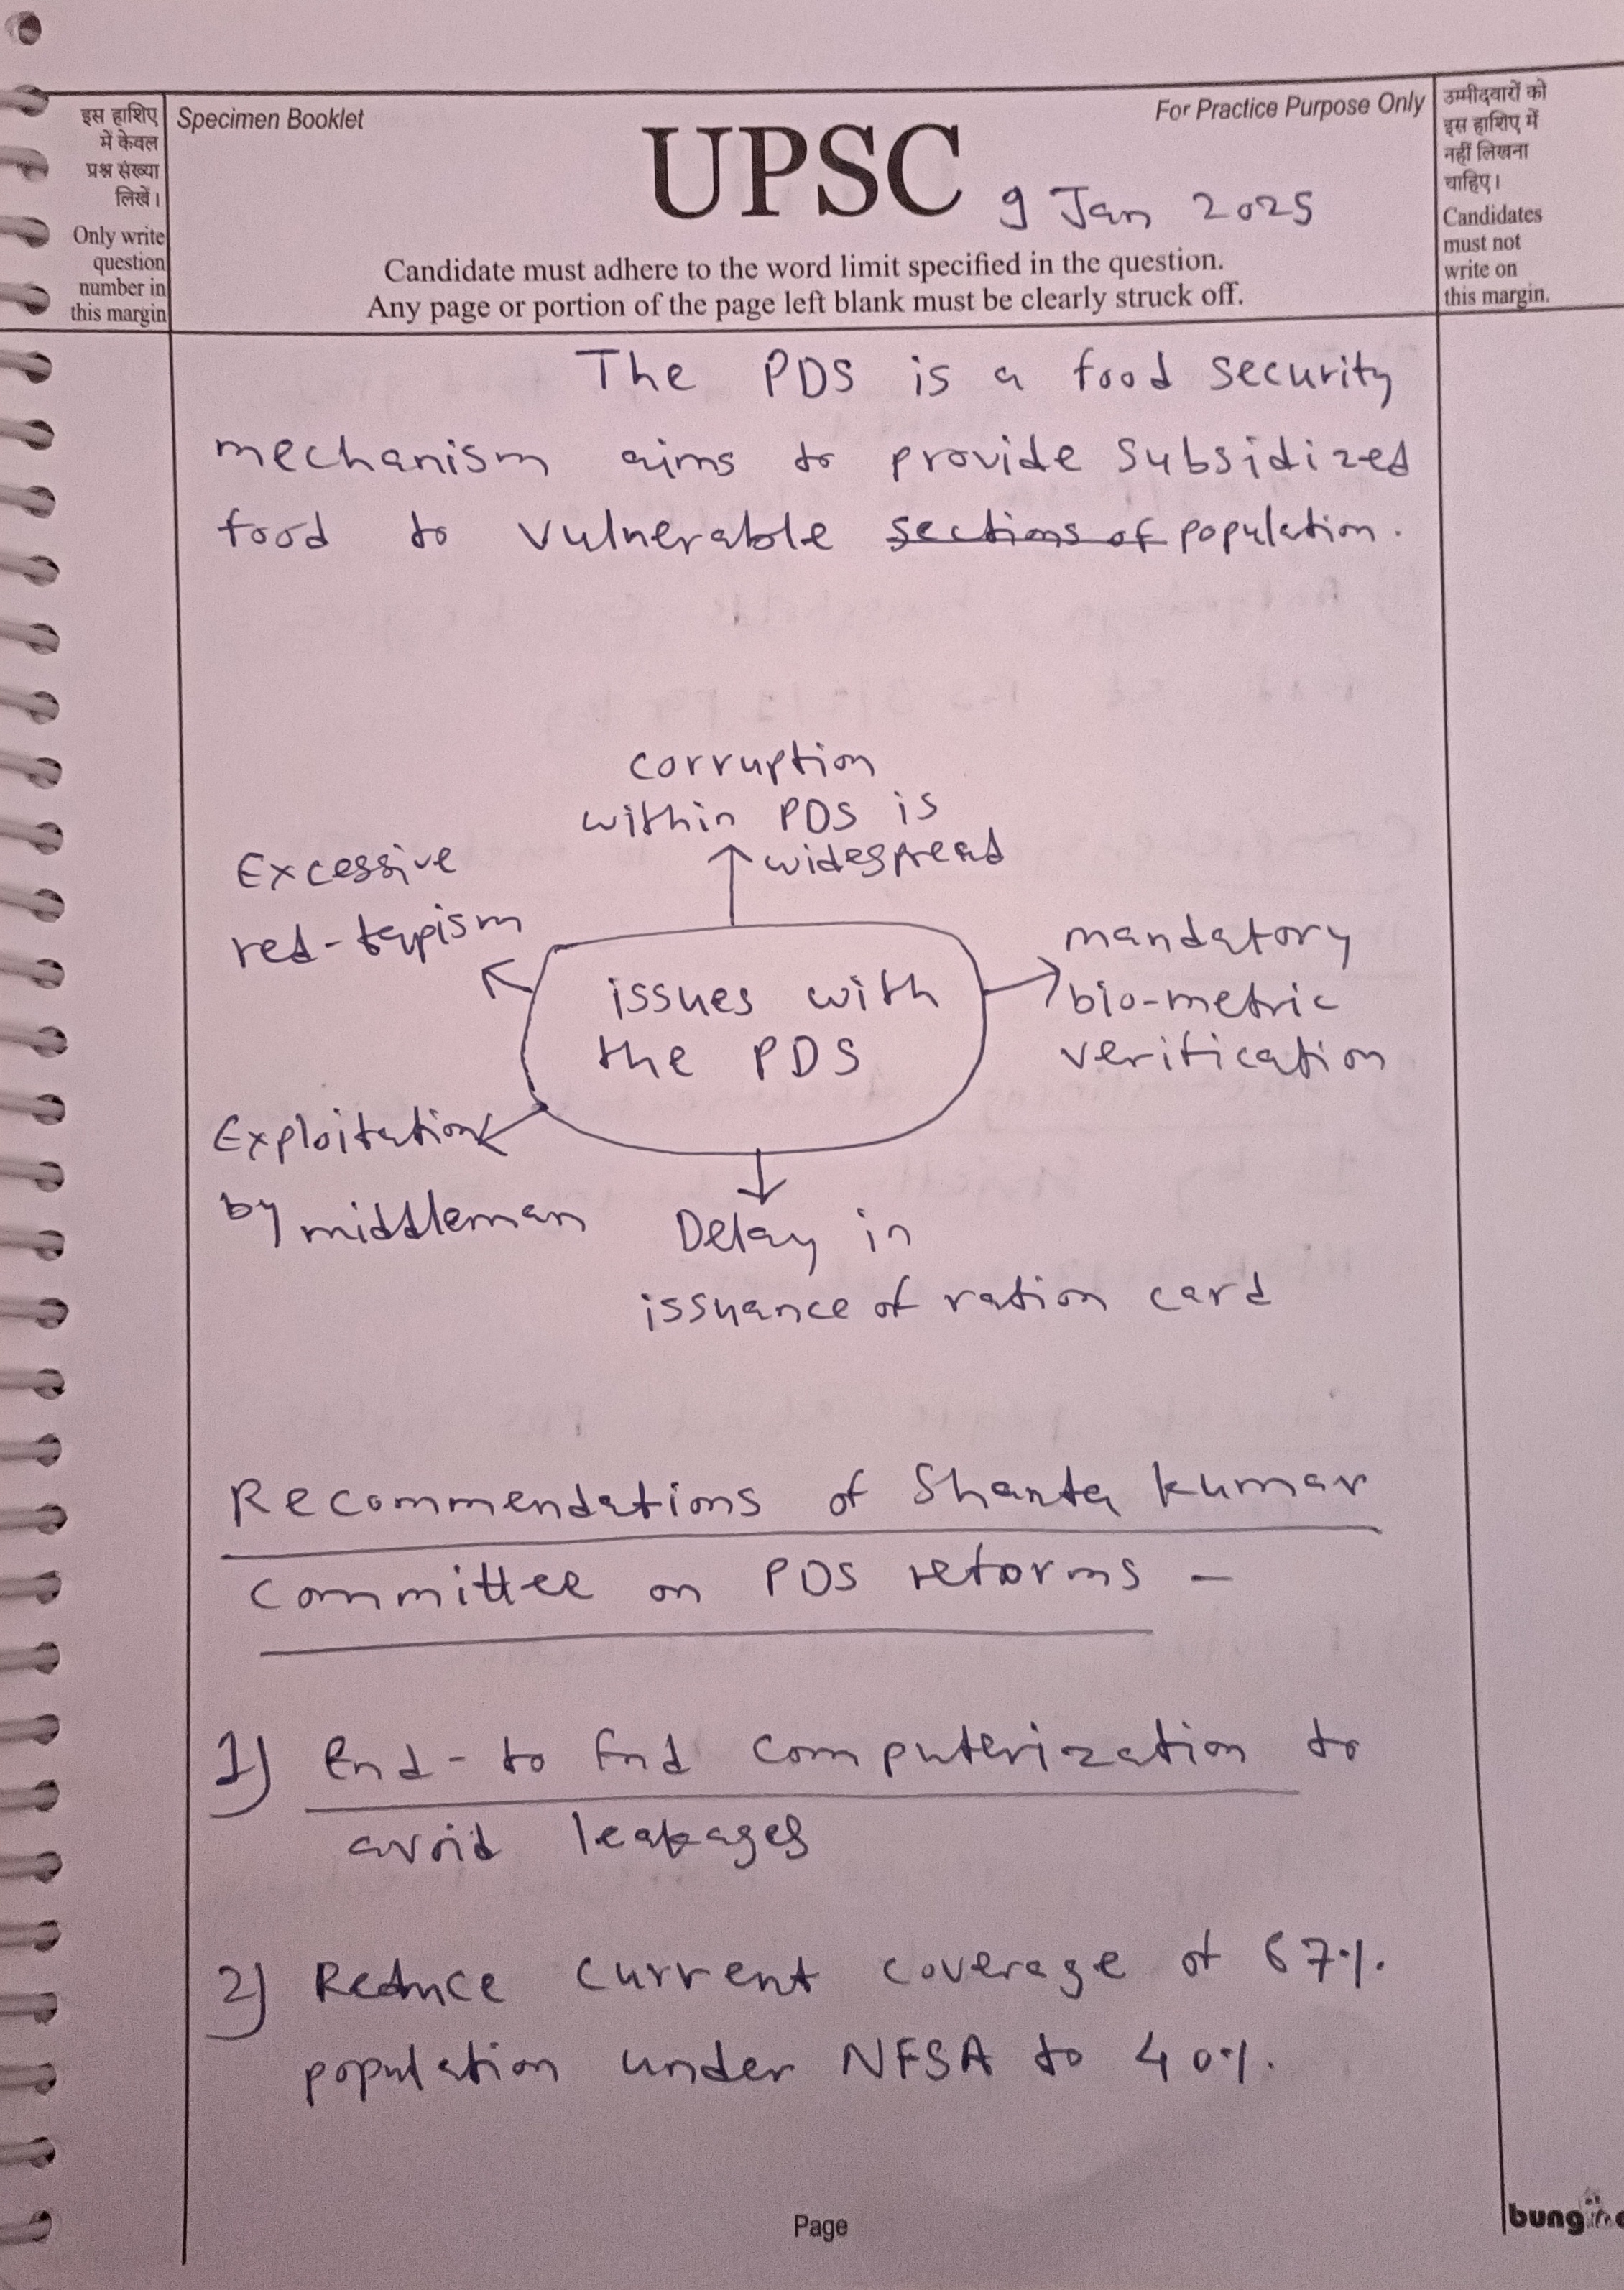 इस हाशिए
में केवल
प्रश्न संख्या
लिखें।
Only write
question
number in
this margin
Specimen Booklet
For Practice Purpose Only
UPSC
9 Jan 2025
Candidate must adhere to the word limit specified in the question.
Any page or portion of the page left blank must be clearly struck off.
उम्मीदवारों को
इस हाशिए में
नहीं लिखना
चाहिए।
Candidates
must not
write on
this margin.
The PDS is a food security
mechanism aims to provide subsidized
food to vulnerable sections of population.
corruption
within PDS is
widespread
Excessive
red-tapism
mandatory
bio-metric
verification
issues with
the PDS
Exploitation
by middleman
Delay in
issuance of ration card
Recommendations of Shanta kumar
committee on PDS reforms -
1) End-to End computerization to
avoid leakages
2) Reduce current coverage of 67%
population under NFSA to 40%.
Page